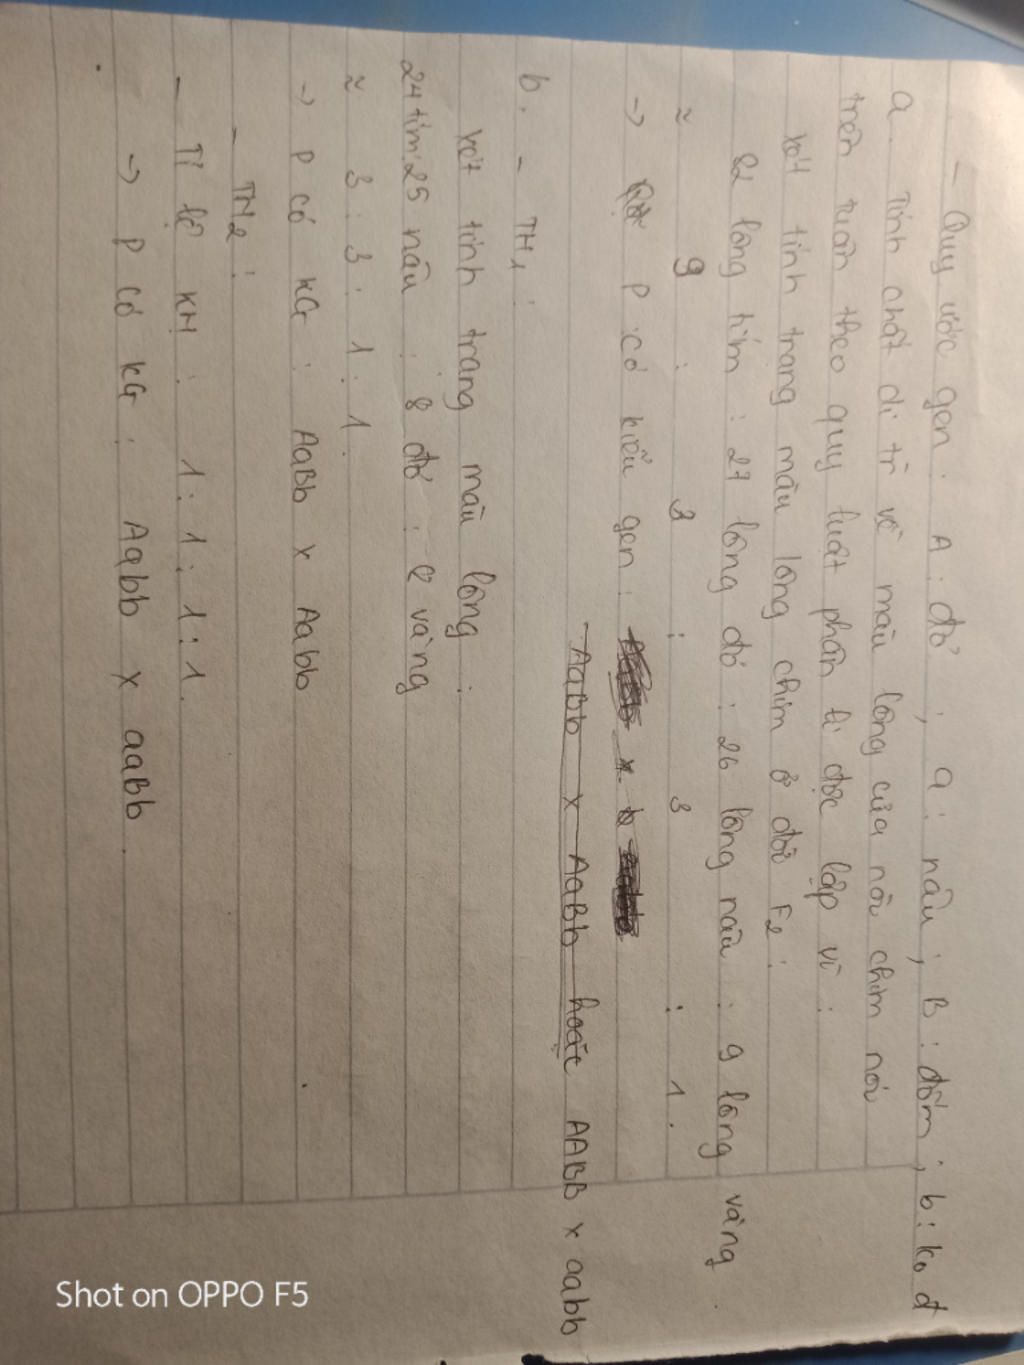 - Quy ước gen : A : đỏ , a : nâu ; B : đốm ; b : ko đ
a. Tính chất di tr về màu lông của nòi chim nói
trên tuân theo quy luật phân li độc lập vì :
xét tính trạng màu lông chim ở đời F2 :
82 lông tím : 27 lông đỏ : 26 lông nâu : 9 lông vàng .
≈ 9 : 3 : 3 : 1 .
-> P có kiểu gen :
AaBb x AaBb hoặc AABB x aabb
b. - TH1 :
xét tính trạng màu lông :
24 tím : 25 nâu : 8 đỏ : 8 vàng
≈ 3 : 3 : 1 : 1 .
-> P có KG : AaBb x Aabb
- TH2 :
- Tỉ lệ KH : 1 : 1 : 1 : 1 .
-> P có KG : Aabb x aaBb .
Shot on OPPO F5